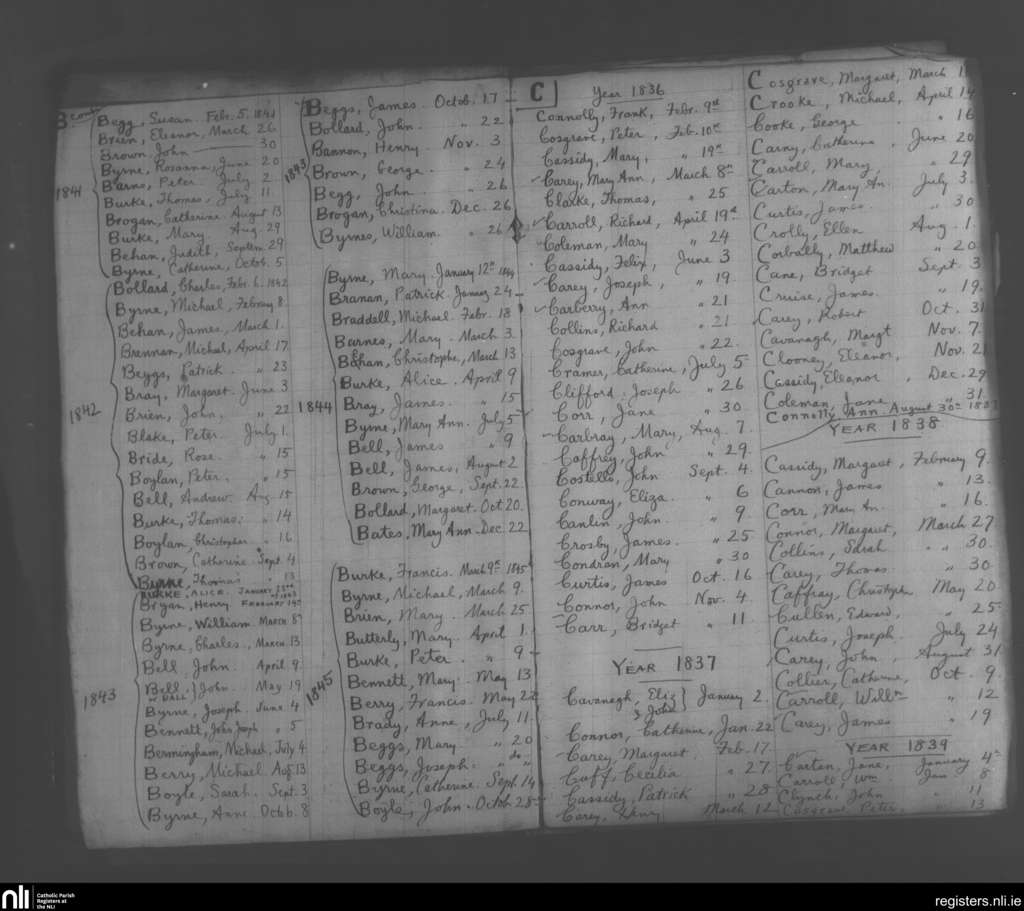 B cont
Begg, Susan. Feb. 5. 1841
Brien, Eleanor, March 26
Brown, John 30
Byrne, Rosanna, June 20
1841
Barns, Peter. July 2
Burke, Thomas, July 11
Brogan, Catherine. August 13
Burke, Mary Aug. 29
Behan, Judith, Septem. 29
Byrne, Catherine, Octob. 5
Bollard, Charles, Feb. 6. 1842
Byrne, Michael, Febray 8
Behan, James, March 1.
Brennan, Michael, April 17
Beggs, Patrick. " 23
Bray, Margaret. June 3
1842
Brien, John, " 22
Blake, Peter. July 1.
Bride, Rose. " 15
Boylan, Peter. " 15
Bell, Andrew. Aug. 15
Burke, Thomas: " 14
Boylan, Christopher " 16
Brown, Catherine. Sept. 4
Byrne, Thomas " 13
BURKE, ALICE. JANUARY 1843
Bryan, Henry. FEBRUARY 14th
Byrne, William. MARCH 8th
Byrne, Charles. MARCH. 13
Bell John. APRIL 9
1843
Bell John. MAY 19
or BALL
Byrne, Joseph. JUNE. 4
Bennett, John Joseph " 5
Bermingham, Michael, July 4
Berry, Michael Aug. 13
Boyle, Sarah. Sept. 3
Byrne, Anne. Octob. 8
Beggs, James. Octob. 17
Bollard, John. " 22
Bannon, Henry Nov. 3
1843
Brown, George. " 24
Begg, John. " 26
Brogan, Christina. Dec. 26
Byrnes, William. " 26
Byrne, Mary. January 12th 1844
Branan, Patrick. January 24
Braddell, Michael. Febr. 18
Barnes, Mary. March 3
Behan, Christopher, March 13
Burke, Alice. April 9
1844
Bray, James. " 15
Byrne, Mary Ann. July 5
Bell, James " 9
Bell, James, August 2
Brown, George, Sept. 22
Bollard, Margaret. Oct 20.
Bates, Mary Ann. Dec. 22
Burke, Francis. March 9th 1845
Byrne, Michael, March 9.
Brien, Mary. March 25
Butterly, Mary. April 1.
Burke, Peter. " 9
Bennett, Mary. May 13
1845
Berry, Francis. May 22
Brady, Anne, July 11
Beggs, Mary. " 20
Beggs, Joseph. " do
Byrne, Catherine. Sept. 14
Boyle, John. Octob. 28
C
Year 1836
Connolly, Frank, Febr. 9th
Cosgrave, Peter, Feb. 10th
Cassidy, Mary, " 19th
Carey, Mary Ann, March 8th
Clarke, Thomas, " 25
Carroll, Richard, April 19th
Coleman, Mary " 24
Cassidy, Felix, June 3
Carey, Joseph, " 19
Carberry, Ann " 21
Collins, Richard " 21
Cosgrave, John " 22.
Cramer, Catherine, July 5
Clifford, Joseph " 26
Corr, Jane " 30
Carbray, Mary, Aug. 7.
Caffrey, John " 29.
Costello, John Sept. 4.
Conway, Eliza. " 6
Canlin, John. " 9.
Crosby, James. " 25
Condran, Mary " 30
Curtis, James Oct. 16
Connor, John Nov. 4.
Carr, Bridget " 11.
YEAR 1837
Cavanagh, Eliz January 2.
& John
Connor, Catherine, Jan. 22
Carey, Margaret Feb. 17.
Cuff, Cecilia " 27.
Cassidy, Patrick " 28
Carey, Henry March 12
Cosgrave, Margaret, March
Crooke, Michael, April 14
Cooke, George " 16
Carny, Catherine, June 20
Carroll, Mary, " 29
Carton, Mary An. July 3.
Curtis, James " 30
Crolly, Ellen Aug. 1.
Corbally, Matthew " 20
Cane, Bridget Sept. 3
Cruise, James " 19.
Carey, Robert Oct. 31
Cavanagh, Margt Nov. 7.
Clooney, Eleanor, Nov. 21
Cassidy, Eleanor, Dec. 29
Coleman, Jane " 31.
Connolly Ann. August 30th 1837
YEAR 1838
Cassidy, Margaret, February 9.
Cannon, James " 13.
Corr, Mary An. " 16.
Connor, Margaret, March 27.
Collins, Sarah " " 30.
Carey, Thomas " 30
Caffray, Christoph May 20
Cullen, Edward, " 25
Curtis, Joseph July 24
Carey, John, August 31
Collier, Catherine, Oct. 9.
Carroll, Willm " 12
Carey, James " 19
YEAR 1839
Carton, Jane, January 4th
Carroll, Wm Jan 8
Clynch, John " 11
Cosgrave, Peter. " 13
nli
Catholic Parish
Registers at
the NLI
registers.nli.ie